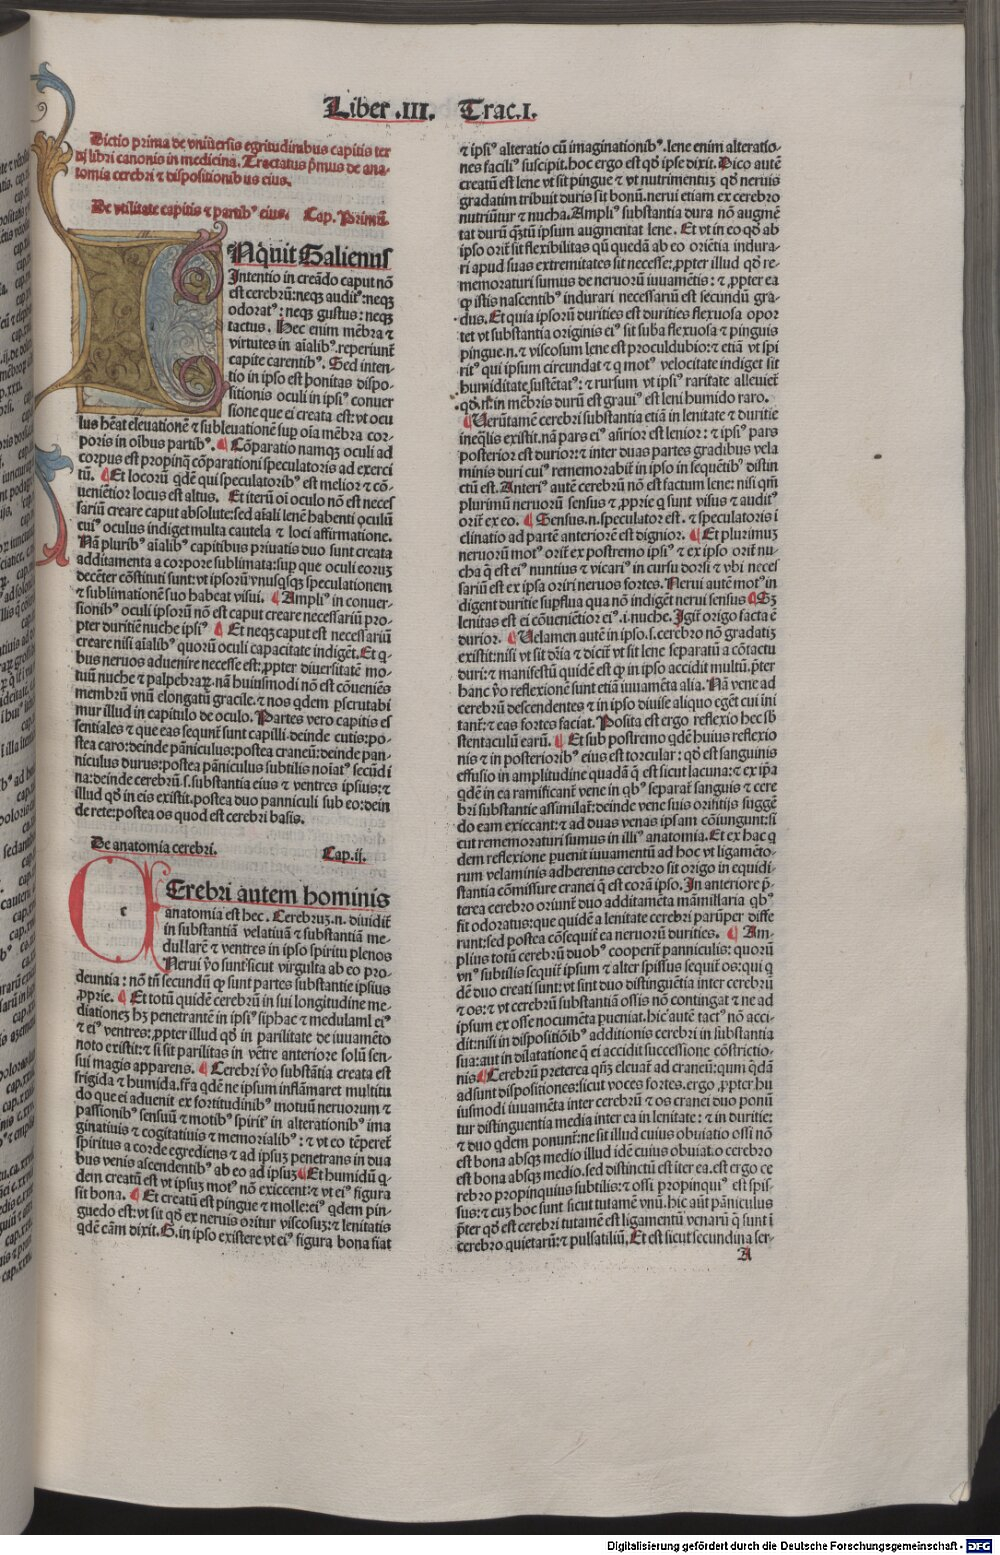 Liber .III. Trac.I.
Dictio prima de vniuersis egritudinibus capitis ter
tij libri canonis in medicina. Tractatus p̄mus de ana⸗
tomia cerebri ⁊ dispositionibus eius.
De vtilitate capitis ⁊ partibꝰ eius. Cap. Primū.
INquit Galienus
Intentio in creādo caput nō
est cerebrū: neqꝫ auditꝰ: neqꝫ
odoratꝰ: neqꝫ gustus: neqꝫ
tactus. Hec enim mēbra ⁊
virtutes in aīalibꝰ. reperiunt̄
capite carentibꝰ. Sed inten⸗
tio in ipso est bonitas dispo⸗
sitionis oculi in ipsiꝰ conuer
sione que ei creata est: vt ocu
lus hēat eleuationē ⁊ subleuationē suꝑ oīa mēbra cor⸗
poris in oībus partibꝰ. Cōparatio namqꝫ oculi ad
corpus est propinq̄ cōparationi speculatoris ad exerci
tū. Et locorū qdē qui speculatoribꝰ est melior ⁊ cō⸗
ueniētior locus est altus. Et iterū oī oculo nō est neces
sariū creare caput absolute: sed aīali lenē habenti oculū
cuiꝰ oculus indiget multa cautela ⁊ loci affirmatione.
Nā pluribꝰ aīalibꝰ capitibus priuatis duo sunt creata
additamenta a corpore sublimata: suꝑ que oculi eoruꝫ
decēter cōstituti sunt: vt ipsorū vnusqsqꝫ speculationem
⁊ sublimationē suo habeat visui. Ampliꝰ in conuer⸗
sionibꝰ oculi ipsorū nō est caput creare necessariū pro⸗
pter duritiē nuche ipsiꝰ Et neqꝫ caput est necessariū
creare nisi aīalibꝰ quorū oculi capacitate indigēt. Et q̄⸗
bus neruos aduenire necesse est: ꝓpter diuersitatē mo⸗
tuū nuche ⁊ palpebraꝝ. nā huiusmodi nō est cōueniēs
membrū vnū elongatū gracile. ⁊ nos qdem pscrutabi
mur illud in capitulo de oculo. Partes vero capitis es
sentiales ⁊ que eas sequnt̄ sunt capilli. deinde cutis: po⸗
stea caro: deinde pāniculus: postea craneū: deinde pan⸗
niculus durus: postea pāniculus subtilis noīatꝰ secūdi
na: deinde cerebrū .s. substantia eius ⁊ ventres ipsius: ⁊
illud qd̄ in eis existit. postea duo panniculi sub eo: dein
de rete: postea os quod est cerebri basis.
De anatomia cerebri. Cap.ij.
CErebri autem hominis
anatomia est hec. Cerebruꝫ .n. diuidit̄
in substantiā velatiuā ⁊ substantiā me⸗
dullarē ⁊ ventres in ipso spiritu plenos
Nerui v̄o sunt sicut virgulta ab eo pro⸗
deuntia: nō tn̄ secundū ꝙ sunt partes substantie ipsius
ꝓprie. Et totū quidē cerebrū in sui longitudine me⸗
diationeꝫ hꝫ penetrantē in ipsiꝰ siphac ⁊ medulam eiꝰ
⁊ eiꝰ ventres: ꝓpter illud qd̄ in parilitate de iuuamēto
noto existit: ⁊ si sit parilitas in vētre anteriore solū sen⸗
sui magis apparens. Cerebri v̄o substātia creata est
frigida ⁊ humida. frīa qdē ne ipsum inflāmaret multitu
do que ei aduenit ex fortitudinibꝰ motuū neruorum ⁊
passionibꝰ sensuū ⁊ motibꝰ spiritꝰ in alterationibꝰ ima
ginatiuis ⁊ cogitatiuis ⁊ memorialibꝰ: ⁊ vt eo tēperet̄
spiritus a corde egrediens ⁊ ad ipsuꝫ penetrans in dua
bus venis ascendentibꝰ ab eo ad ipsuꝫ Et humidū q⸗
dem creatū est vt ipsuꝫ motꝰ nō exiccent: ⁊ vt eiꝰ figura
sit bona. Et creatū est pingue ⁊ molle: eiꝰ qdem pin⸗
guedo est: vt sit qd̄ ex neruis oritur viscosuꝫ: ⁊ lenitatis
qdē cām dixit. G. in ipso existere vt eiꝰ figura bona fiat
⁊ ipsiꝰ alteratio cū imaginationibꝰ. lene enim alteratio⸗
nes faciliꝰ suscipit. hoc ergo est qd̄ ipse dixit. Dico autē
creatū est lene vt sit pingue ⁊ vt nutrimentuꝫ qd̄ neruis
gradatim tribuit duris sit bonū. nerui etiam ex cerebro
nutriūtur ⁊ nucha. Ampliꝰ substantia dura nō augmē
tat durū qꝫtū ipsum augmentat lene. Et vt in eo qd̄ ab
ipso orit̄ sit flexibilitas qū quedā ab eo oriētia indura⸗
ri apud suas extremitates sit necesse: ꝓpter illud qd̄ re⸗
memoraturi sumus de neruorū iuuamētis: ⁊ ꝓpter ea
ꝙ istis nascentibꝰ indurari necessariū est secundū gra⸗
dus. Et quia ipsorū durities est durities flexuosa opor
tet vt substantia originis eiꝰ sit suba flexuosa ⁊ pinguis
pingue .n. ⁊ viscosum lene est proculdubio: ⁊ etiā vt spi
ritꝰ qui ipsum circundat ⁊ q̄ motꝰ velocitate indiget sit
humiditate sustētatꝰ: ⁊ rursum vt ipsiꝰ raritate alleuiet̄
qd̄ .n. in mēbris durū est grauiꝰ est leni humido raro.
Verūtamē cerebri substantia etiā in lenitate ⁊ duritie
ineq̄lis existit. nā pars eiꝰ an̄rior est lenior: ⁊ ipsiꝰ pars
posterior est durior: ⁊ inter duas partes gradibus vela
minis duri cuiꝰ rememorabit̄ in ipso in sequētibꝰ distin
ctū est. Anteriꝰ autē cerebrū nō est factum lene: nisi qm̄
plurimū neruorū sensus ⁊ ꝓprie q̄ sunt visus ⁊ auditꝰ
orit̄ ex eo. Sensus .n. speculator est. ⁊ speculatoris i
clinatio ad partē anteriorē est dignior. Et plurimuꝫ
neruorū motꝰ orit̄ ex postremo ipsiꝰ ⁊ ex ipso orit̄ nu⸗
cha q̄ est eiꝰ nuntius ⁊ vicariꝰ in cursu dorsi ⁊ vbi neces
sariū est ex ipsa oriri neruos fortes. Nerui autē motꝰ in
digent duritie suꝑflua qua nō indigēt nerui sensus Sꝫ
lenitas est ei cōueniētior eiꝰ .i. nuche. Igit̄ origo facta ē
durior. Velamen autē in ipso .s. cerebro nō gradatiꝫ
existit: nisi vt sit dr̄ia ⁊ dicit̄ vt sit lene separatū a cōtactu
duri: ⁊ manifestū quidē est ꝙ in ipso accidit multū. p̄ter
hanc v̄o reflexionē sunt etiā iuuamēta alia. Nā vene ad
cerebrū descendentes ⁊ in ipso diuise aliquo egēt cui ini
tant̄: ⁊ eas fortes faciat. Posita est ergo reflexio hec sb̄
stentaculū earū. Et sub postremo qdē huius reflexio
nis ⁊ in posterioribꝰ eius est torcular: qd̄ est sanguinis
effusio in amplitudine quadā q̄ est sicut lacuna: ⁊ ex ip̄a
qdē in ea ramificant̄ vene in qbꝰ separat̄ sanguis ⁊ cere
bri substantie assimilat̄: deinde vene suis orificijs suggē
do eam exiccant: ⁊ ad duas venas ipsam cōiungunt: si
cut rememoraturi sumus in illiꝰ anatomia. Et ex hac q
dem reflexione puenit iuuamentū ad hoc vt ligamēto⸗
rum velaminis adherentis cerebro sit origo in equidi⸗
stantia cōmissure cranei q̄ est corā ipso. In anteriore p̄⸗
terea cerebro oriunt̄ duo additamēta māmillaria qbꝰ
fit odoratus: que quidē a lenitate cerebri parūper diffe
runt: sed postea cōsequit̄ ea neruorū durities. Am⸗
plius totū cerebrū duobꝰ cooperit̄ panniculis: quorū
vnꝰ subtilis sequit̄ ipsum ⁊ alter spissus sequit̄ os: qui q
dē duo creati sunt: vt sint duo distinguētia inter cerebrū
⁊ os: ⁊ vt cerebrū substantiā ossis nō contingat ⁊ ne ad
ipsum ex osse nocumēta pueniat. hic autē tactꝰ nō acci⸗
dit: nisi in dispositiōibꝰ additionis cerebri in substantia
sua: aut in dilatatione q̄ ei accidit successione cōstrictio⸗
nis Cerebrū preterea qn̄qꝫ eleuat̄ ad craneū: qum qdā
adsunt dispositiones: sicut voces fortes. ergo ꝓpter hu
iusmodi iuuamēta inter cerebrū ⁊ os cranei duo ponū
tur distinguentia media inter ea in lenitate: ⁊ in duritie:
⁊ duo qdem ponunt̄: ne sit illud cuius obuiatio ossi nō
est bona absqꝫ medio illud idē cuius obuiat .o cerebro
est bona absqꝫ medio. sed distinctū est iter ea. est ergo ce
rebro propinquius subtilis: ⁊ ossi propinquꝰ est spis⸗
sus: ⁊ cuꝫ hoc sunt sicut tutamē vnū. hic aūt pāniculus
p̄ter qd̄ est cerebri tutamē est ligamentū venarū q̄ sunt i
cerebro quietarū: ⁊ pulsatiliū. Et est sicut secundina ser⸗
A
Digitalisierung gefördert durch die Deutsche Forschungsgemeinschaft - DFG